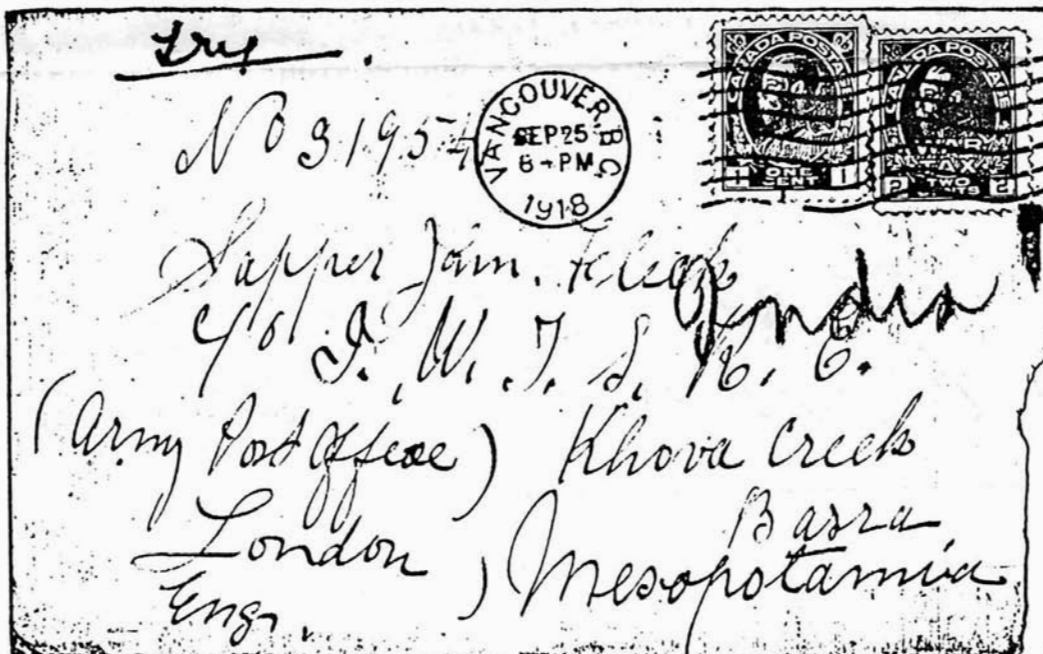 Try.
No 31954
VANCOUVER, B.C.
SEP 25
8 - PM
1918
CANADA POSTAGE
1 ONE CENT 1
CANADA POSTAGE
WAR TAX
2 TWO CENTS 2
Sapper Jam.
India
c/o I. W. T. S. R. E.
(Army Post Office) Khova Creek
London Basra
Eng. ) Mesopotamia